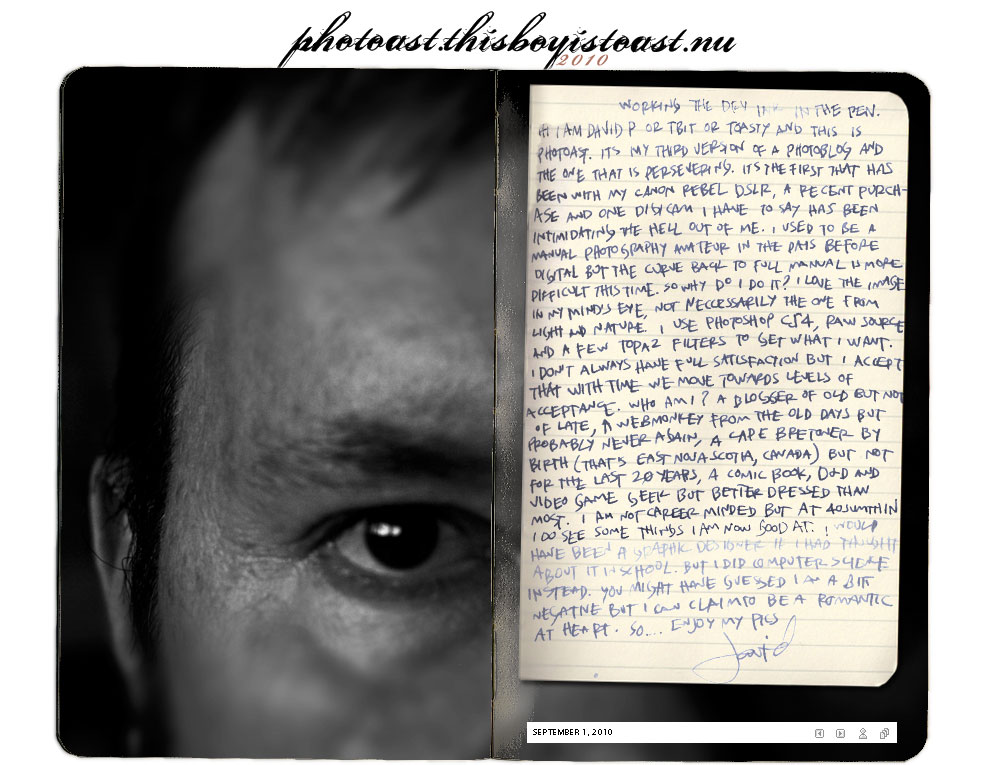 photoast.thisboyistoast.nu
2010
WORKING THE DRY INK IN THE PEN.
HI I AM DAVID P OR TBIT OR TOASTY AND THIS IS
PHOTOAST. ITS MY THIRD VERSION OF A PHOTOBLOG AND
THE ONE THAT IS PERSEVERING. ITS THE FIRST THAT HAS
BEEN WITH MY CANON REBEL DSLR, A RECENT PURCH-
ASE AND ONE DIGICAM I HAVE TO SAY HAS BEEN
INTIMIDATING THE HELL OUT OF ME. I USED TO BE A
MANUAL PHOTOGRAPHY AMATEUR IN THE DAYS BEFORE
DIGITAL BUT THE CURVE BACK TO FULL MANUAL IS MORE
DIFFICULT THIS TIME. SO WHY DO I DO IT? I LOVE THE IMAGE
IN MY MIND'S EYE, NOT NECCESSARILY THE ONE FROM
LIGHT AND NATURE. I USE PHOTOSHOP CS4, RAW SOURCE
AND A FEW TOPAZ FILTERS TO GET WHAT I WANT.
I DON'T ALWAYS HAVE FULL SATISFACTION BUT I ACCEPT
THAT WITH TIME WE MOVE TOWARDS LEVELS OF
ACCEPTANCE. WHO AM I? A BLOGGER OF OLD BUT NOT
OF LATE, A WEBMONKEY FROM THE OLD DAYS BUT
PROBABLY NEVER AGAIN, A CAPE BRETONER BY
BIRTH (THAT'S EAST NOVA SCOTIA, CANADA) BUT NOT
FOR THE LAST 20 YEARS, A COMIC BOOK, D&D AND
VIDEO GAME GEEK BUT BETTER DRESSED THAN
MOST. I AM NOT CAREER MINDED BUT AT 40SUMTHIN
I DO SEE SOME THINGS I AM NOW GOOD AT. I WOULD
HAVE BEEN A GRAPHIC DESIGNER IF I HAD THOUGHT
ABOUT IT IN SCHOOL. BUT I DID COMPUTER SCIENCE
INSTEAD. YOU MIGHT HAVE GUESSED I AM A BIT
NEGATIVE BUT I CAN CLAIM TO BE A ROMANTIC
AT HEART. SO... ENJOY MY PICS
David
SEPTEMBER 1, 2010